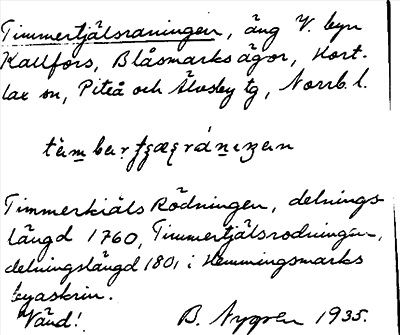 Timmertjälsraningen, äng V. byn
Kallfors, Blåsmarks ägor, Hort-
lax sn, Piteå och Älvsby tg, Norrb. l.
Timmerkiäls Rödningen, delnings-
längd 1760, Timmertjälsrodningen,
delningslängd 1801 i Hemmingsmarks
byaskrin.
Vänd! B. Nygren 1935.